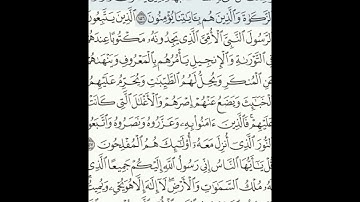 ٱلزَّكَوٰةَ وَٱلَّذِينَ هُم بِـَٔايَـٰتِنَا يُؤْمِنُونَ ۝ ٱلَّذِينَ يَتَّبِعُونَ
ٱلرَّسُولَ ٱلنَّبِىَّ ٱلْأُمِّىَّ ٱلَّذِى يَجِدُونَهُۥ مَكْتُوبًا عِندَهُمْ
فِى ٱلتَّوْرَىٰةِ وَٱلْإِنجِيلِ يَأْمُرُهُم بِٱلْمَعْرُوفِ وَيَنْهَىٰهُمْ
عَنِ ٱلْمُنكَرِ وَيُحِلُّ لَهُمُ ٱلطَّيِّبَـٰتِ وَيُحَرِّمُ عَلَيْهِمُ
ٱلْخَبَـٰٓئِثَ وَيَضَعُ عَنْهُمْ إِصْرَهُمْ وَٱلْأَغْلَـٰلَ ٱلَّتِى كَانَتْ
عَلَيْهِمْ ۚ فَٱلَّذِينَ ءَامَنُوا۟ بِهِۦ وَعَزَّرُوهُ وَنَصَرُوهُ وَٱتَّبَعُوا۟
ٱلنُّورَ ٱلَّذِىٓ أُنزِلَ مَعَهُۥٓ ۙ أُو۟لَـٰٓئِكَ هُمُ ٱلْمُفْلِحُونَ ۝
قُلْ يَـٰٓأَيُّهَا ٱلنَّاسُ إِنِّى رَسُولُ ٱللَّهِ إِلَيْكُمْ جَمِيعًا ٱلَّذِى
لَهُۥ مُلْكُ ٱلسَّمَـٰوَٰتِ وَٱلْأَرْضِ ۖ لَآ إِلَـٰهَ إِلَّا هُوَ يُحْىِۦ وَيُمِيتُ